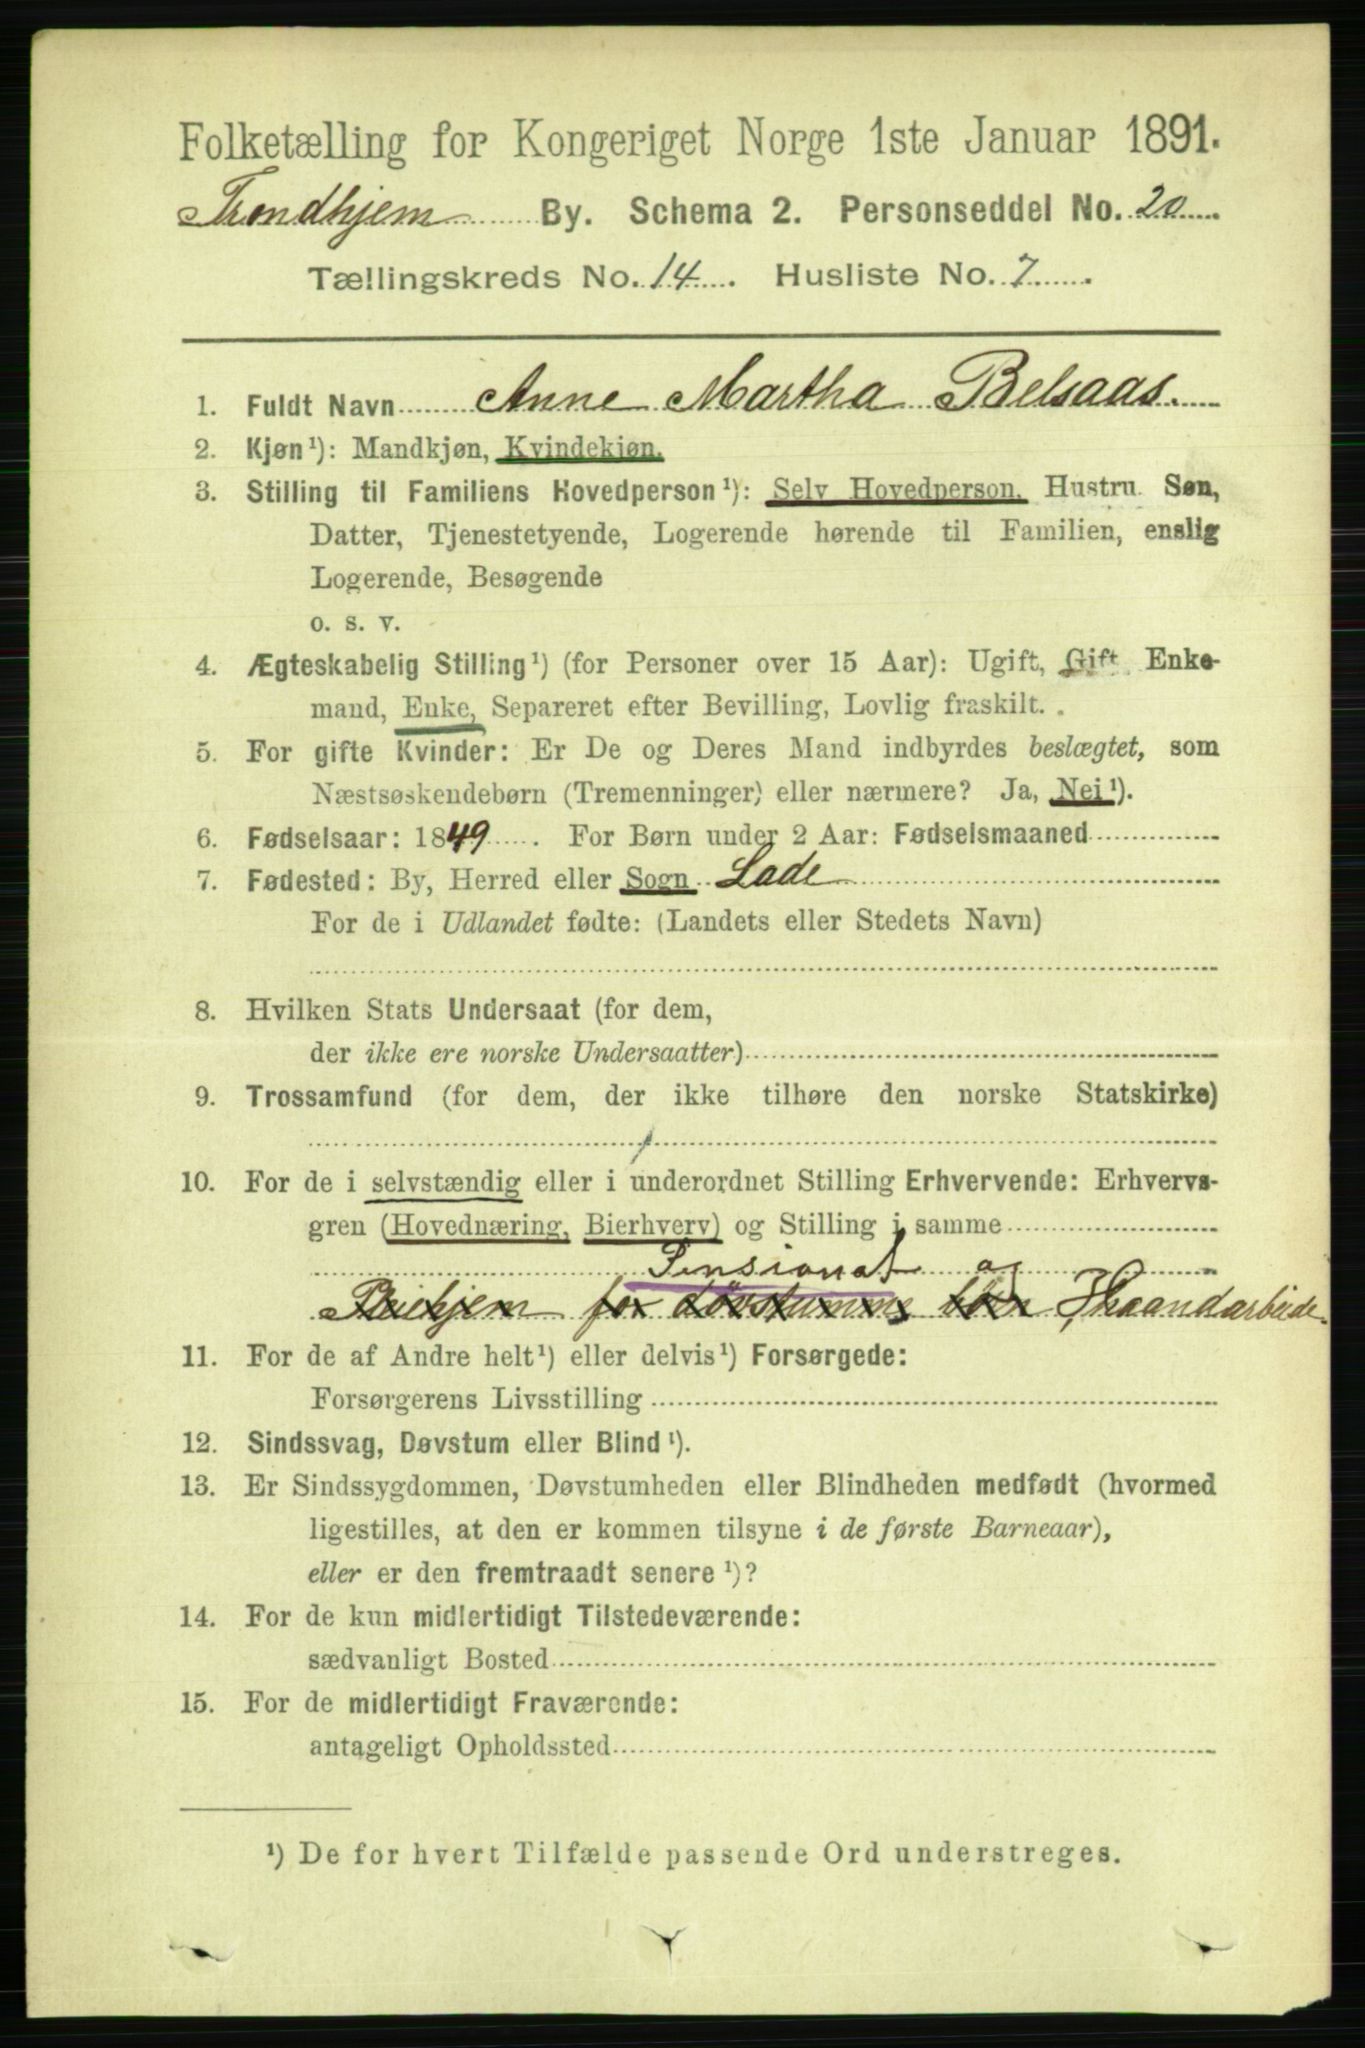 Folketælling for Kongeriget Norge 1ste Januar 1891.
Trondhjem By. Schema 2. Personseddel No. 20
Tællingskreds No. 14. Husliste No. 7.
1. Fuldt Navn Anne Martha Belsaas.
2. Kjøn¹): Mandkjøn, Kvindekjøn.
3. Stilling til Familiens Hovedperson¹): Selv Hovedperson, Hustru, Søn,
Datter, Tjenestetyende, Logerende hørende til Familien, enslig
Logerende, Besøgende
o. s. v.
4. Ægteskabelig Stilling¹) (for Personer over 15 Aar): Ugift, Gift, Enke-
mand, Enke, Separeret efter Bevilling, Lovlig fraskilt.
5. For gifte Kvinder: Er De og Deres Mand indbyrdes beslægtet, som
Næstsøskendebørn (Tremenninger) eller nærmere? Ja, Nei¹).
6. Fødselsaar: 1849. For Børn under 2 Aar: Fødselsmaaned
7. Fødested: By, Herred eller Sogn Lade
For de i Udlandet fødte: (Landets eller Stedets Navn)
8. Hvilken Stats Undersaat (for dem,
der ikke ere norske Undersaatter)
9. Trossamfund (for dem, der ikke tilhøre den norske Statskirke)
10. For de i selvstændig eller i underordnet Stilling Erhvervende: Erhvervs-
gren (Hovednæring, Bierhverv) og Stilling i samme
Pensionat og
Pleiehjem for døvstumme børn Haandarbeide.
11. For de af Andre helt¹) eller delvis¹) Forsørgede:
Forsørgerens Livsstilling
12. Sindssvag, Døvstum eller Blind¹).
13. Er Sindssygdommen, Døvstumheden eller Blindheden medfødt (hvormed
ligestilles, at den er kommen tilsyne i de første Barneaar),
eller er den fremtraadt senere¹)?
14. For de kun midlertidigt Tilstedeværende:
sædvanligt Bosted
15. For de midlertidigt Fraværende:
antageligt Opholdssted
¹) De for hvert Tilfælde passende Ord understreges.